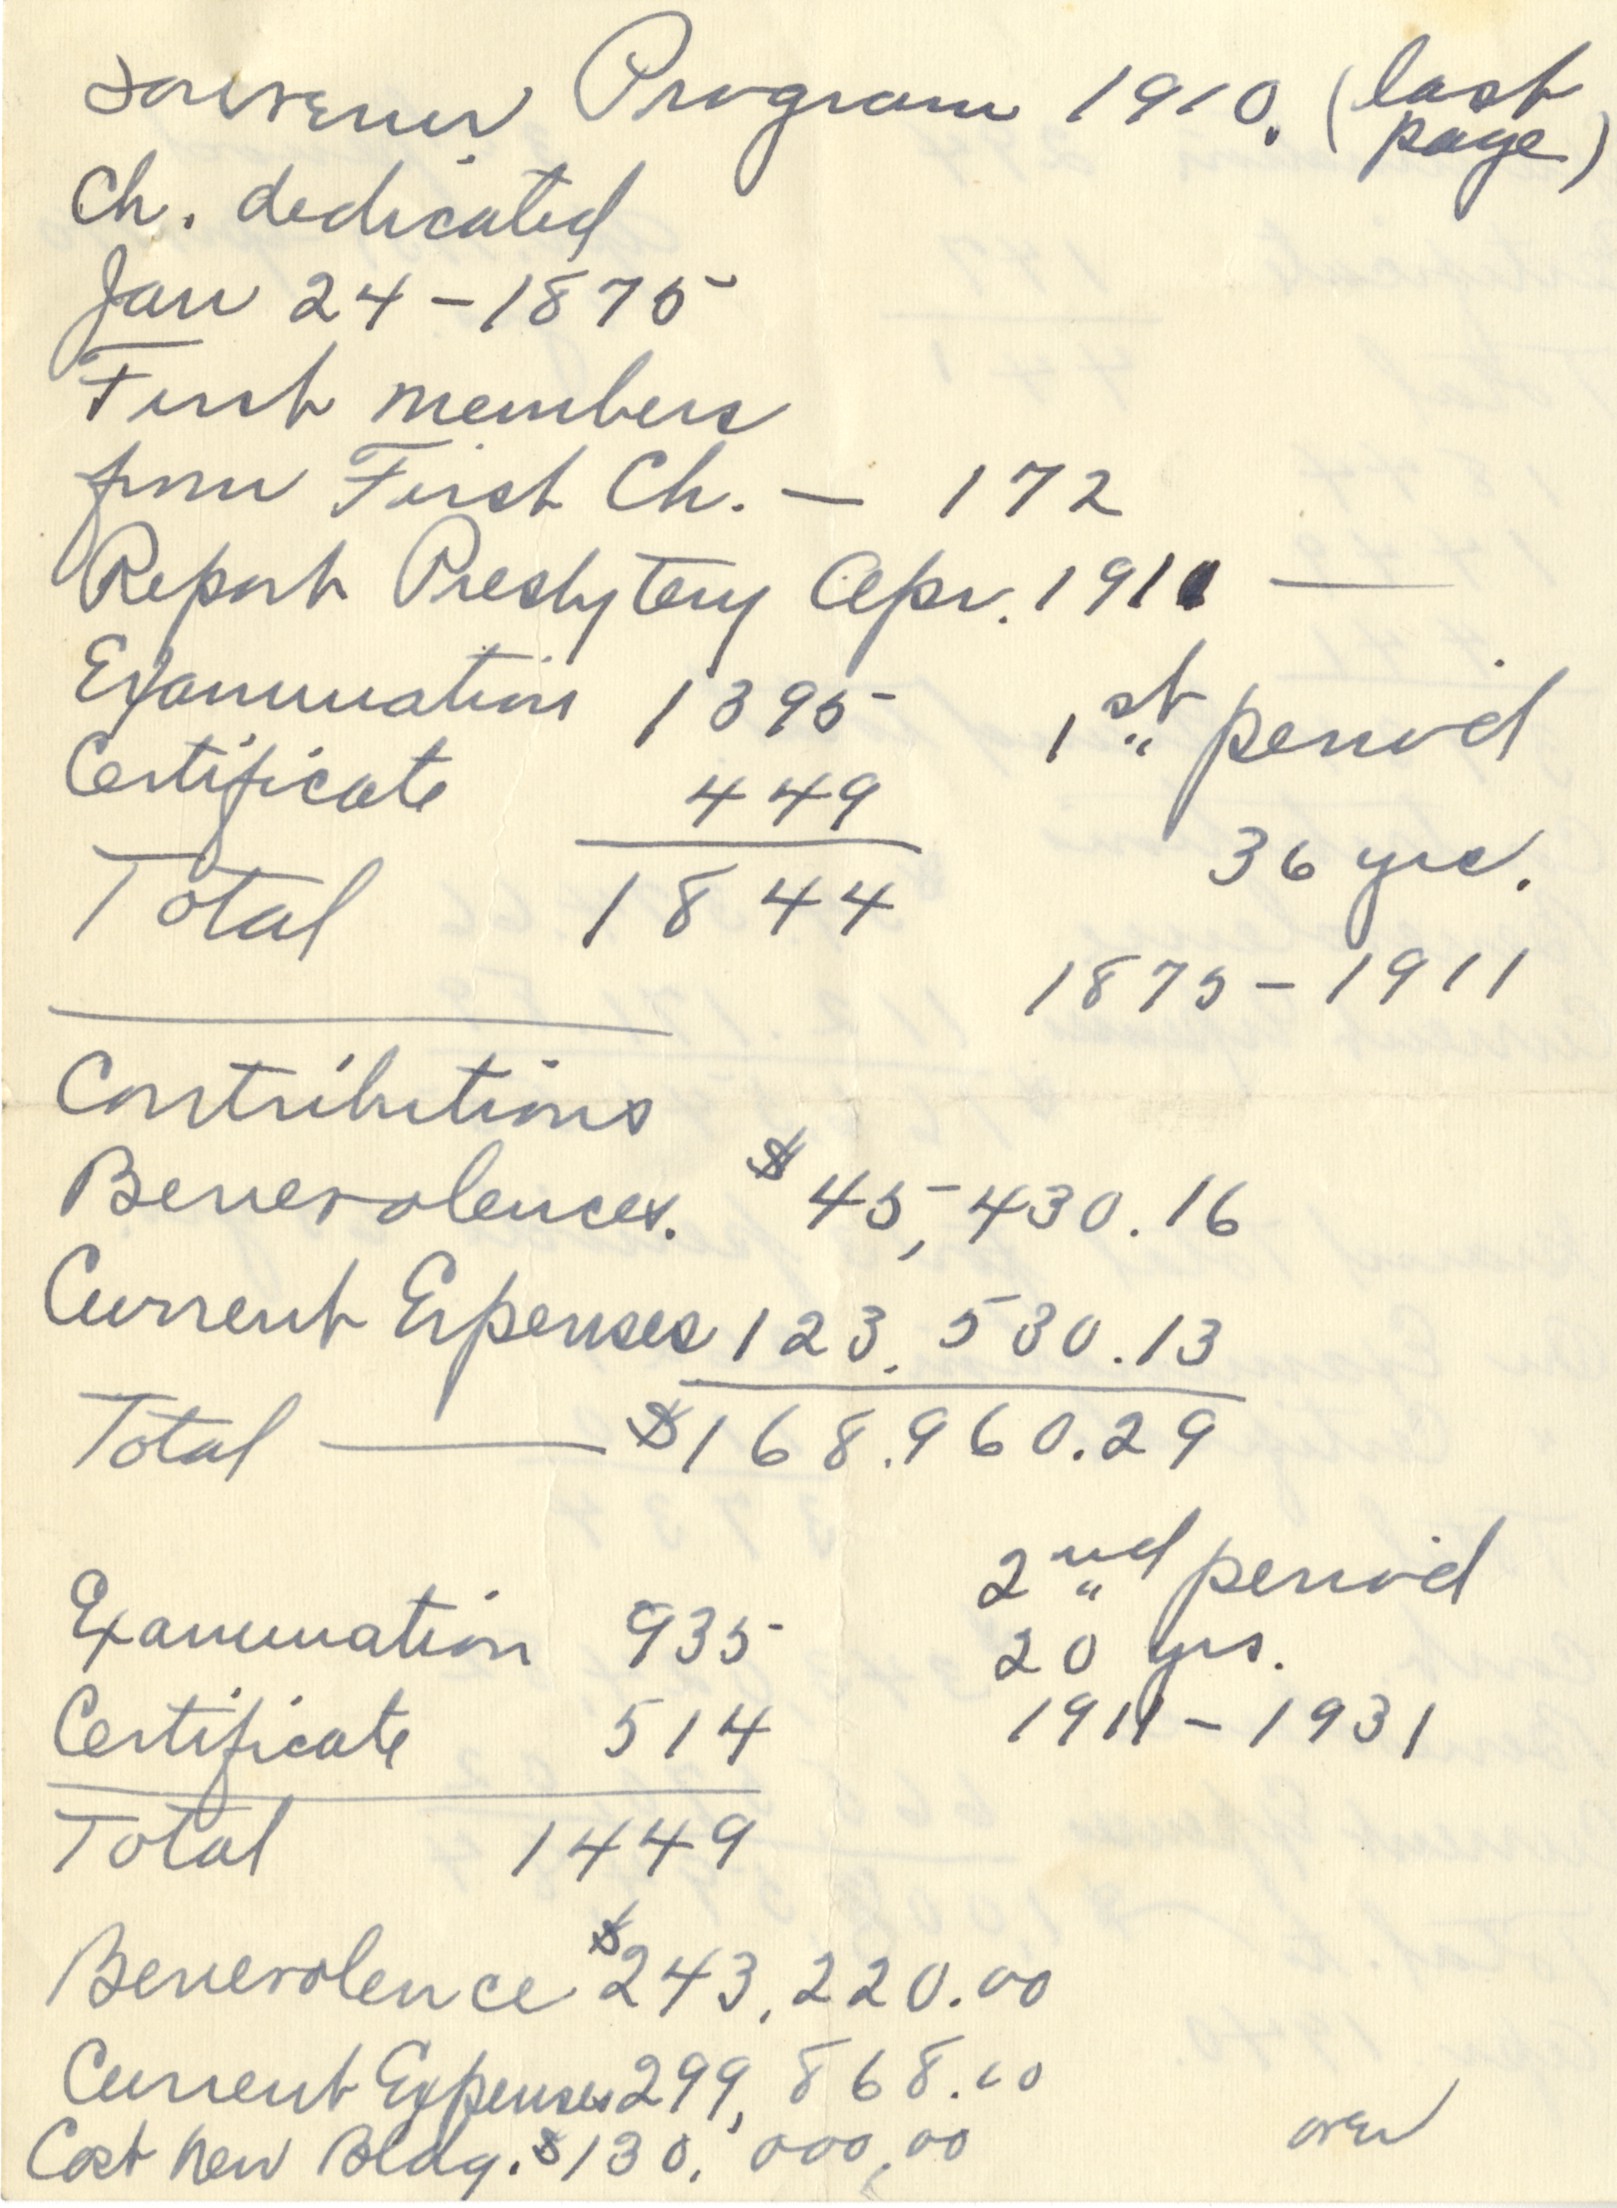 Souvenir Program 1910. (last page)
Ch. dedicated
Jan 24 - 1875
First members
from First Ch. — 172
Report Presbytery Apr. 1911 —
Examination 1395 1st period
Certificate 449
36 yrs.
Total 1844
1875 - 1911
Contributions
Benevolences. $45,430.16
Current Expenses 123.530.13
Total — $168.960.29
2nd period
Examination 935
20 yrs.
Certificate 514 1911 - 1931
Total 1449
Benevolence $243,220.00
Current Expenses 299,868.00
Cost New Bldg. $130,000.00
over